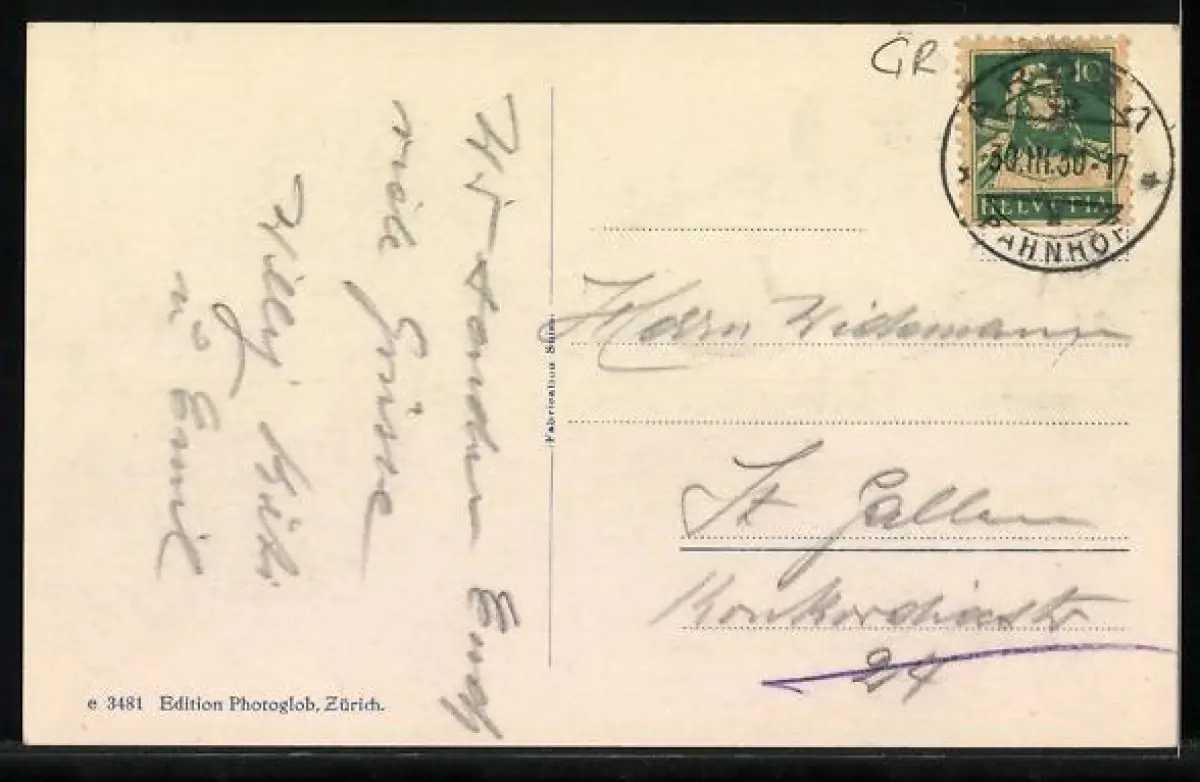 GR
10
30.III.30.-17
HELVETIA
BAHNHOF
Wir senden Euch
viele Grüsse
Willy
u. Emil
Fabrication Suisse
Herrn Widemann
St Gallen
Konkordiastr
24
e 3481 Edition Photoglob, Zürich.